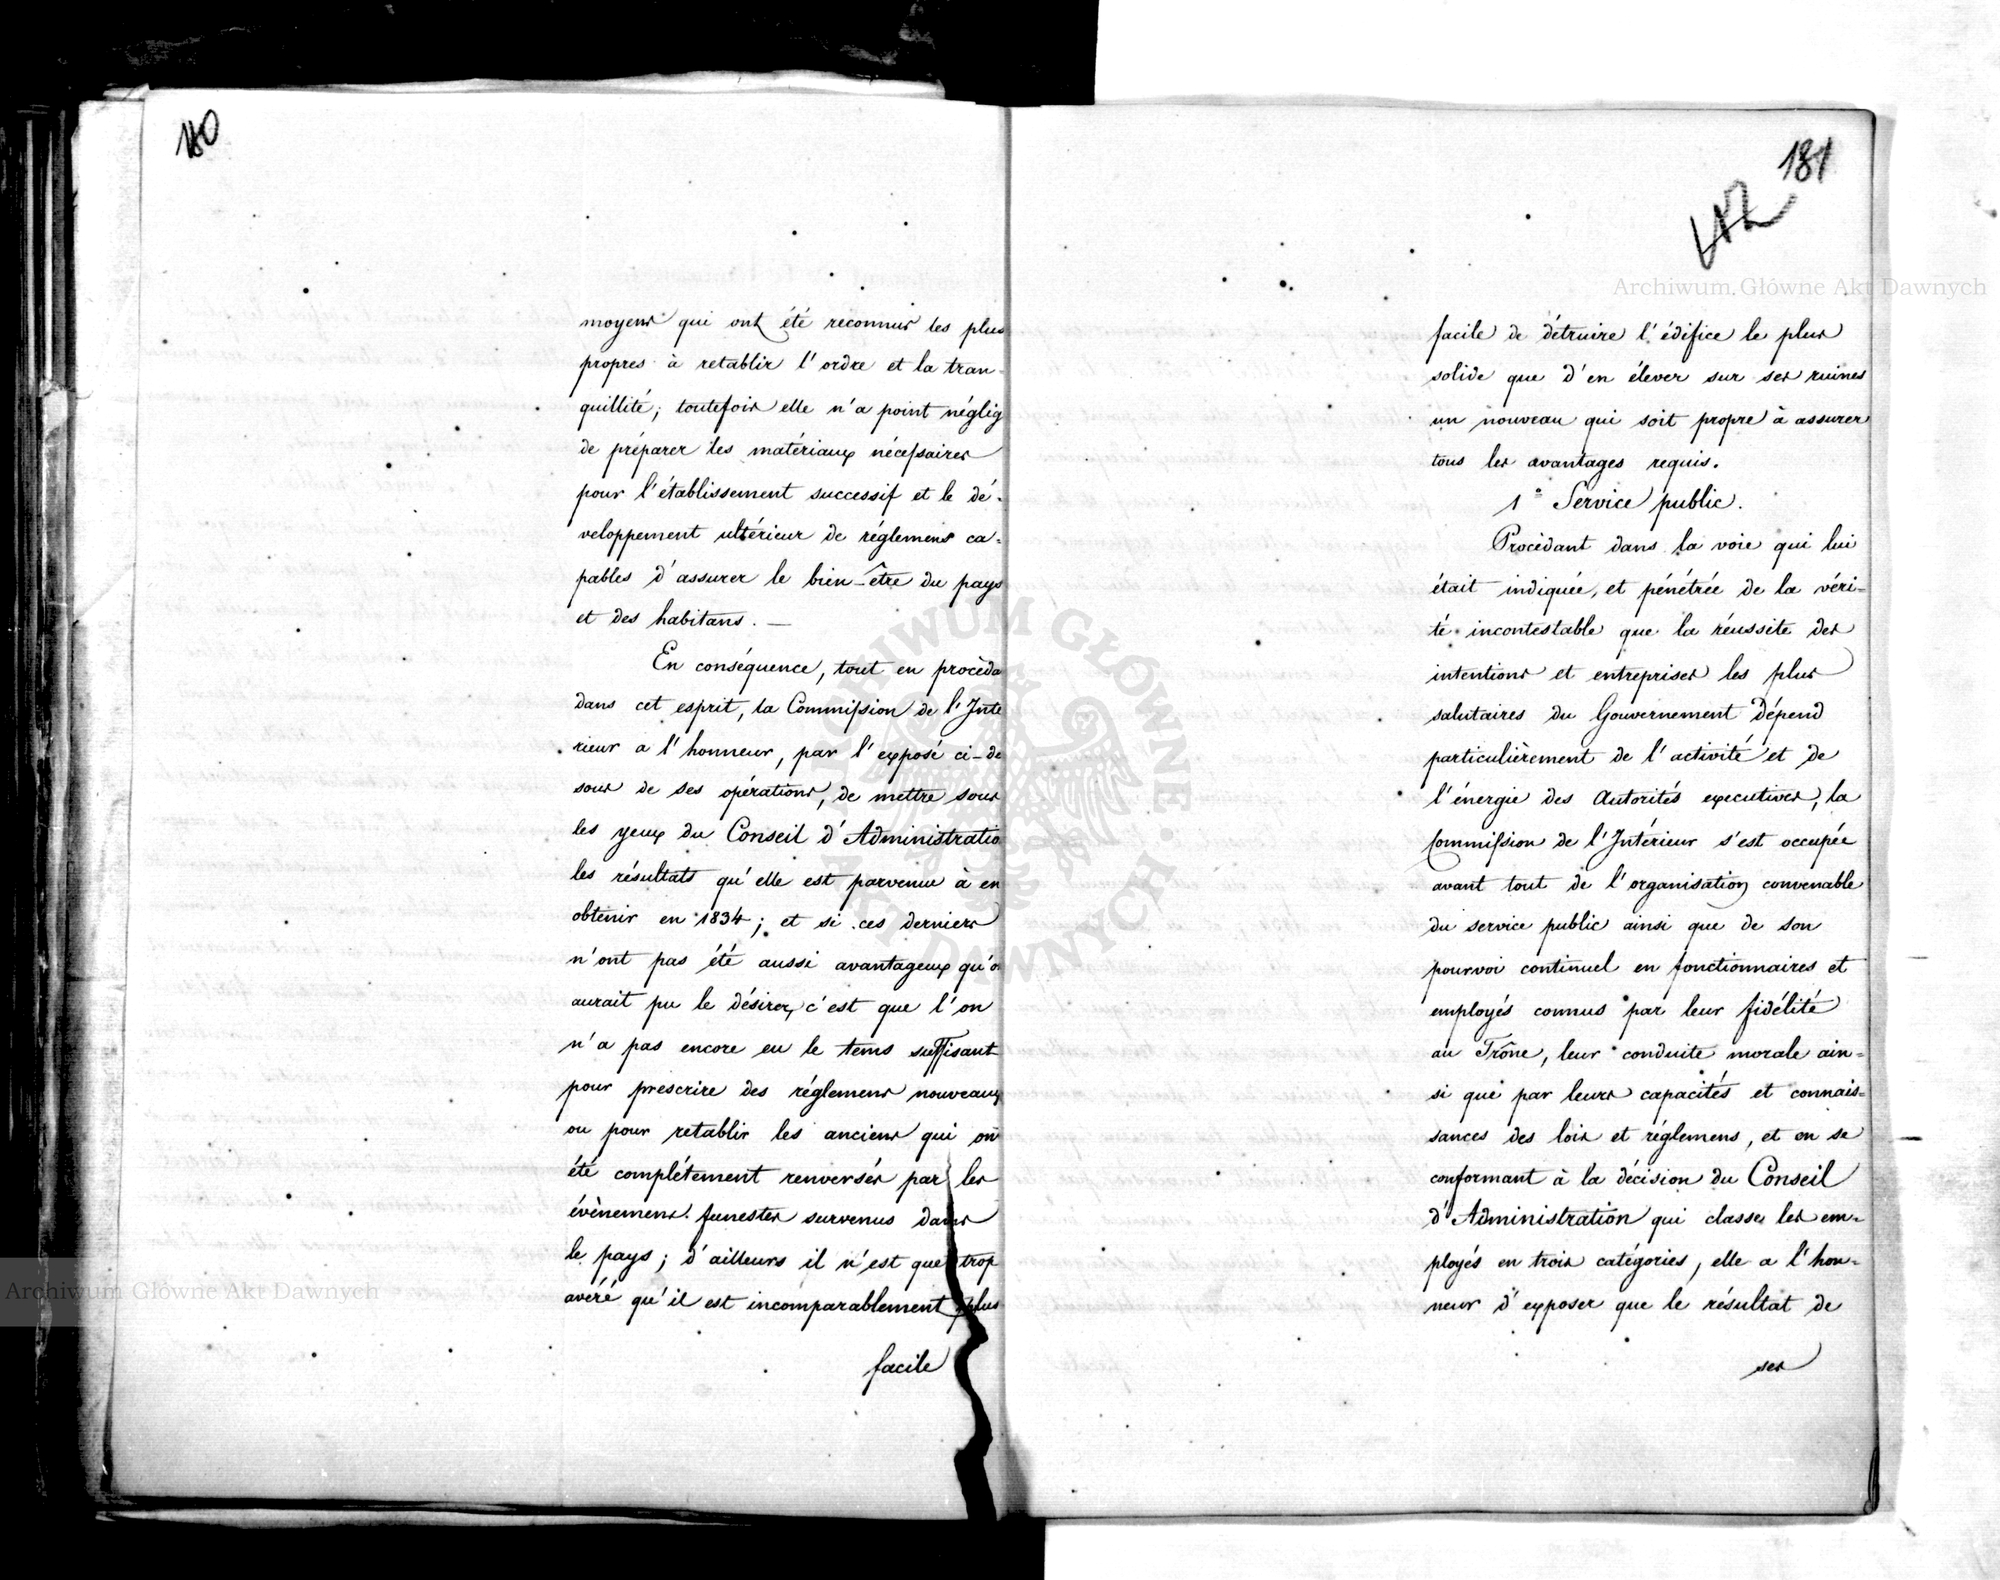 180
moyens qui ont été reconnus les plus
propres à retablir l'ordre et la tran-
quillité; toutefois elle n'a point néglig
de préparer les matériaux nécessaires
pour l'établissement successif et le dé-
veloppement ultérieur de réglemens ca-
pables d'assurer le bien-être du pays
et des habitans. —
En conséquence, tout en procèda
dans cet esprit, la Commission de l'Inte
rieur a l'honneur, par l'exposé ci-de
sous de ses opérations, de mettre sous
les yeux du Conseil d'Administratio
les résultats qu'elle est parvenue à en
obtenir en 1834; et si ces derniers
n'ont pas été aussi avantageux qu'o
aurait pu le désirer, c'est que l'on
n'a pas encore eu le tems suffisant
pour prescrire des réglemens nouveaux
ou pour retablir les anciens qui on
été complétement renversés par les
évènemens funestes survenus dans
le pays; d'ailleurs il n'est que trop
avéré qu'il est incomparablement plus
facile
181
facile de détruire l'édifice le plus
solide que d'en élever sur ses ruines
un nouveau qui soit propre à assurer
tous les avantages requis.
1° Service public.
Procèdant dans la voie qui lui
était indiquée, et pénétrée de la véri-
té incontestable que la réussite des
intentions et entreprises les plus
salutaires du Gouvernement dépend
particulièrement de l'activité et de
l'énergie des Autorités executives, la
Commission de l'Intérieur s'est occupée
avant tout de l'organisation convenable
du service public ainsi que de son
pourvoi continuel en fonctionnaires et
employés connus par leur fidélité
au Trône, leur conduite morale ain-
si que par leurs capacités et connais-
sances des lois et réglemens, et en se
conformant à la décision du Conseil
d'Administration qui classe les em-
ployés en trois catégories, elle a l'hon-
neur d'exposer que le résultat de
ses
Archiwum Główne Akt Dawnych
Archiwum Główne Akt Dawnych
ARCHIWUM GŁÓWNE AKT DAWNYCH